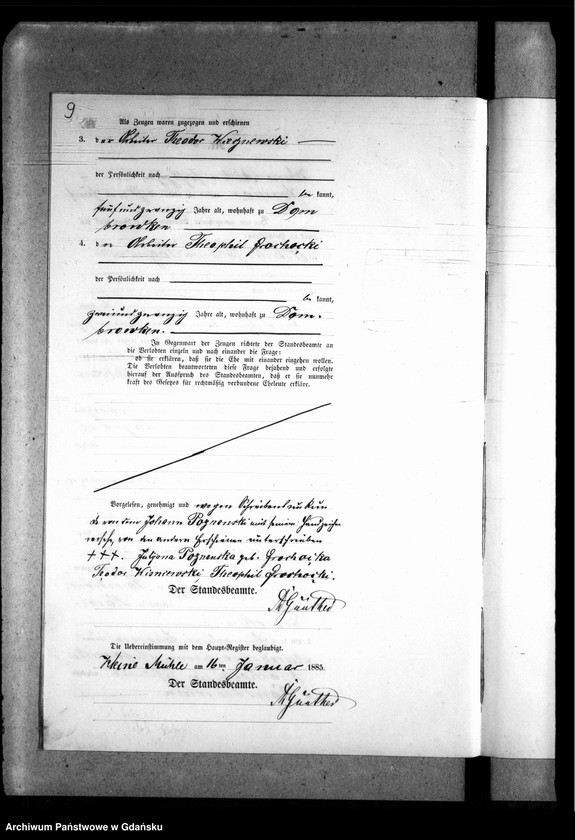 9
Als Zeugen waren zugezogen und erschienen
3. der Arbeiter Theodor Wisznewski
der Persönlichkeit nach
be kannt,
fünfundzwanzig Jahre alt, wohnhaft zu Dom
browken
4. der Arbeiter Theophil Grochocki
der Persönlichkeit nach
be kannt,
zweiundzwanzig Jahre alt, wohnhaft zu Dom-
browken.
In Gegenwart der Zeugen richtete der Standesbeamte an
die Verlobten einzeln und nach einander die Frage:
ob sie erklären, daß sie die Ehe mit einander eingehen wollen.
Die Verlobten beantworteten diese Frage bejahend und erfolgte
hierauf der Ausspruch des Standesbeamten, daß er sie nunmehr
kraft des Gesetzes für rechtmäßig verbundene Eheleute erkläre.
Vorgelesen, genehmigt und wegen Schreibensunkun
de von dem Johann Poznanski mit seinem Handzeichen
versehen, von den andern Erschienenen unterschrieben
+++. Juljana Poznanska geb. Grochocka
Teodor Wisniewski, Theophil Grochocki.
Der Standesbeamte.
Günther
Die Uebereinstimmung mit dem Haupt-Register beglaubigt.
Kleine Mühle am 16ten Januar 1885.
Der Standesbeamte.
Günther
Archiwum Państwowe w Gdańsku